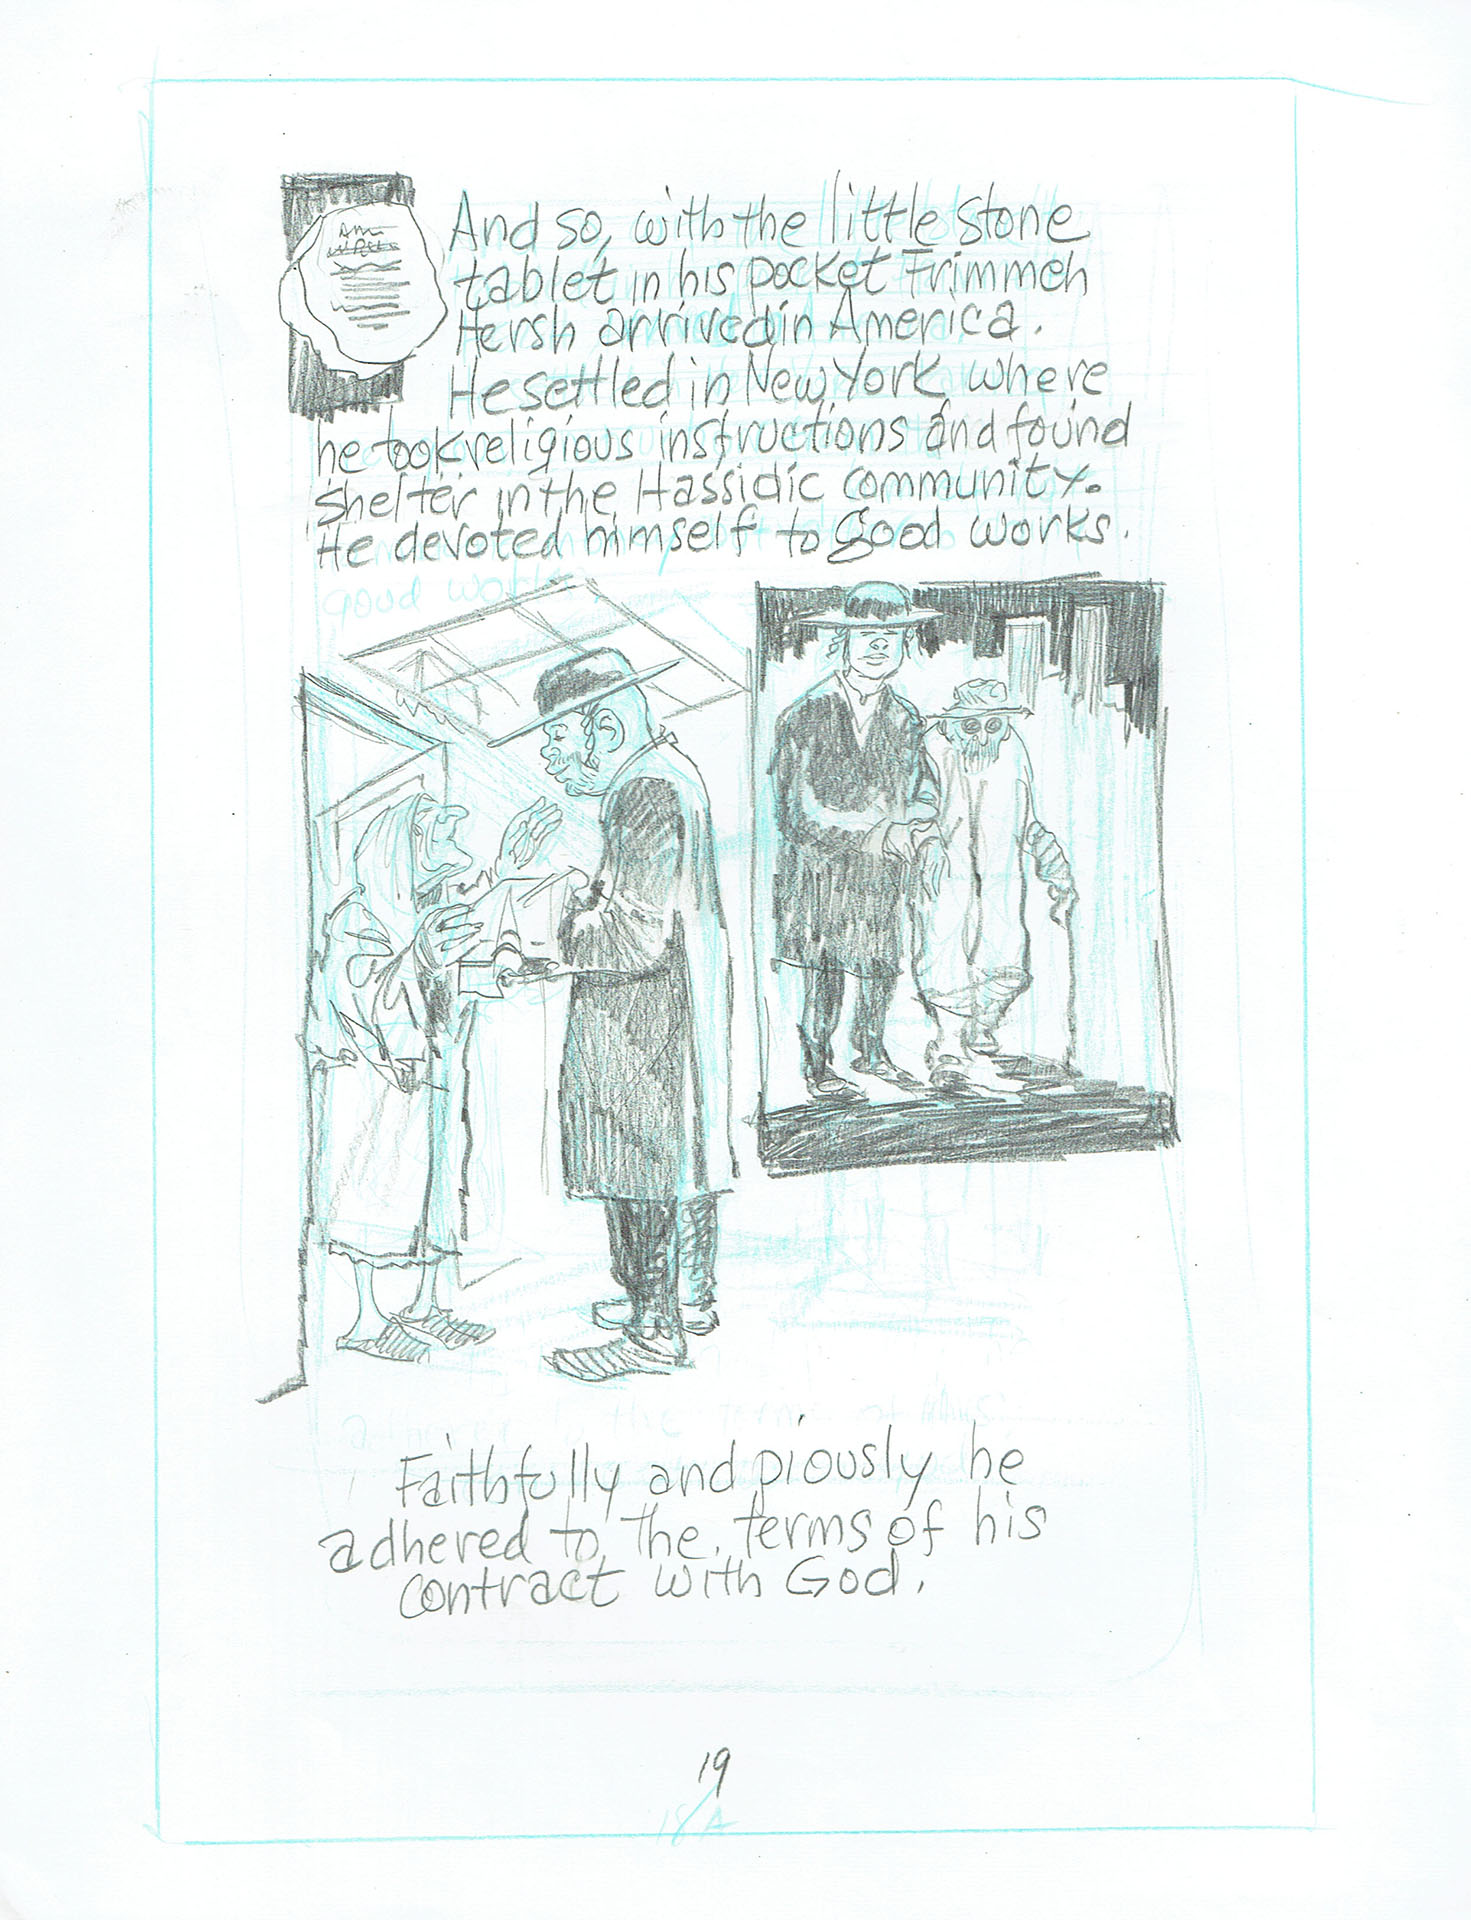 And so, with the little stone
tablet in his pocket Frimmeh
Hersh arrived in America.
He settled in New York where
he took religious instructions and found
shelter in the Hassidic community.
He devoted himself to good works.
good works
adhered to the terms of his
Faithfully and piously he
adhered to the terms of his
contract with God.
19
18A